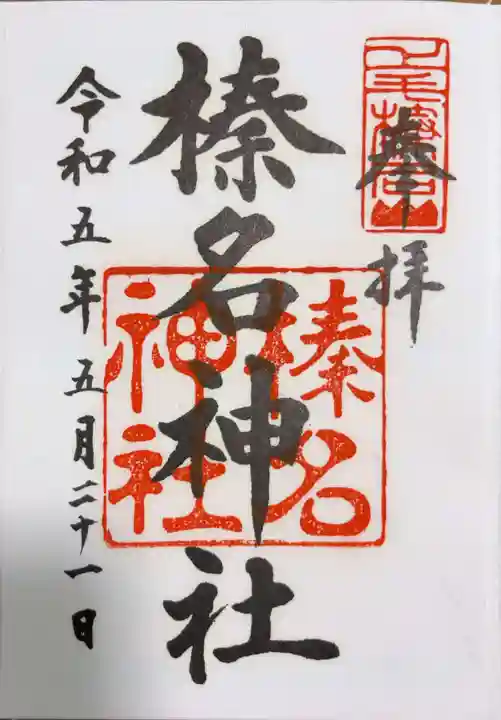 奉拝
上毛榛名山
榛名神社
榛名
神社
令和五年五月二十一日